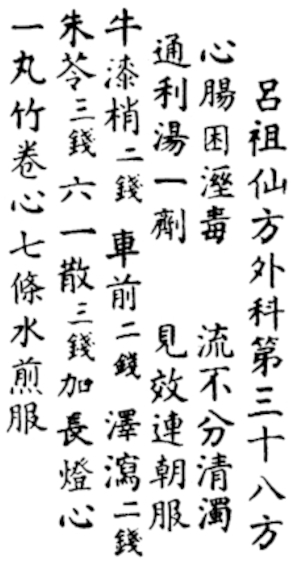 呂祖仙方外科第三十八方
心腸困溼毒　流不分清濁
通利湯一劑　見效連朝服
牛漆梢二錢　車前二錢　澤瀉二錢
朱苓三錢　六一散三錢加長燈心
一丸竹卷心七條水煎服